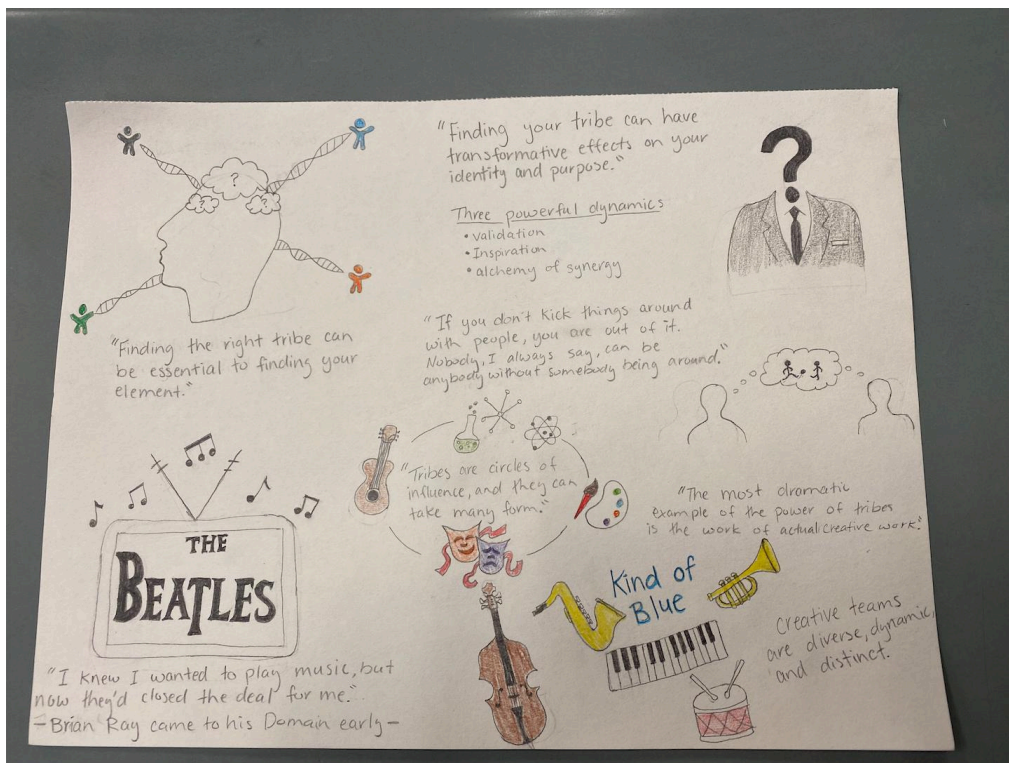 "Finding your tribe can have
transformative effects on your
identity and purpose."
Three powerful dynamics
• Validation
• Inspiration
• alchemy of synergy
?
?
?
?
"Finding the right tribe can
be essential to finding your
element."
"If you don't kick things around
with people, you are out of it.
Nobody, I always say, can be
anybody without somebody being around."
"Tribes are circles of
influence, and they can
take many form."
"The most dramatic
example of the power of tribes
is the work of actual creative work."
THE
BEATLES
"I knew I wanted to play music, but
now they'd closed the deal for me."
- Brian Ray came to his Domain early -
Kind of
Blue
Creative teams
are diverse, dynamic,
and distinct.